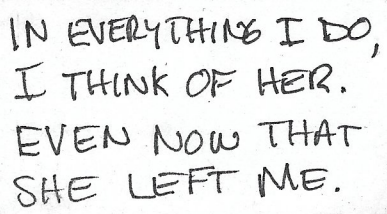 IN EVERYTHING I DO,
I THINK OF HER.
EVEN NOW THAT
SHE LEFT ME.